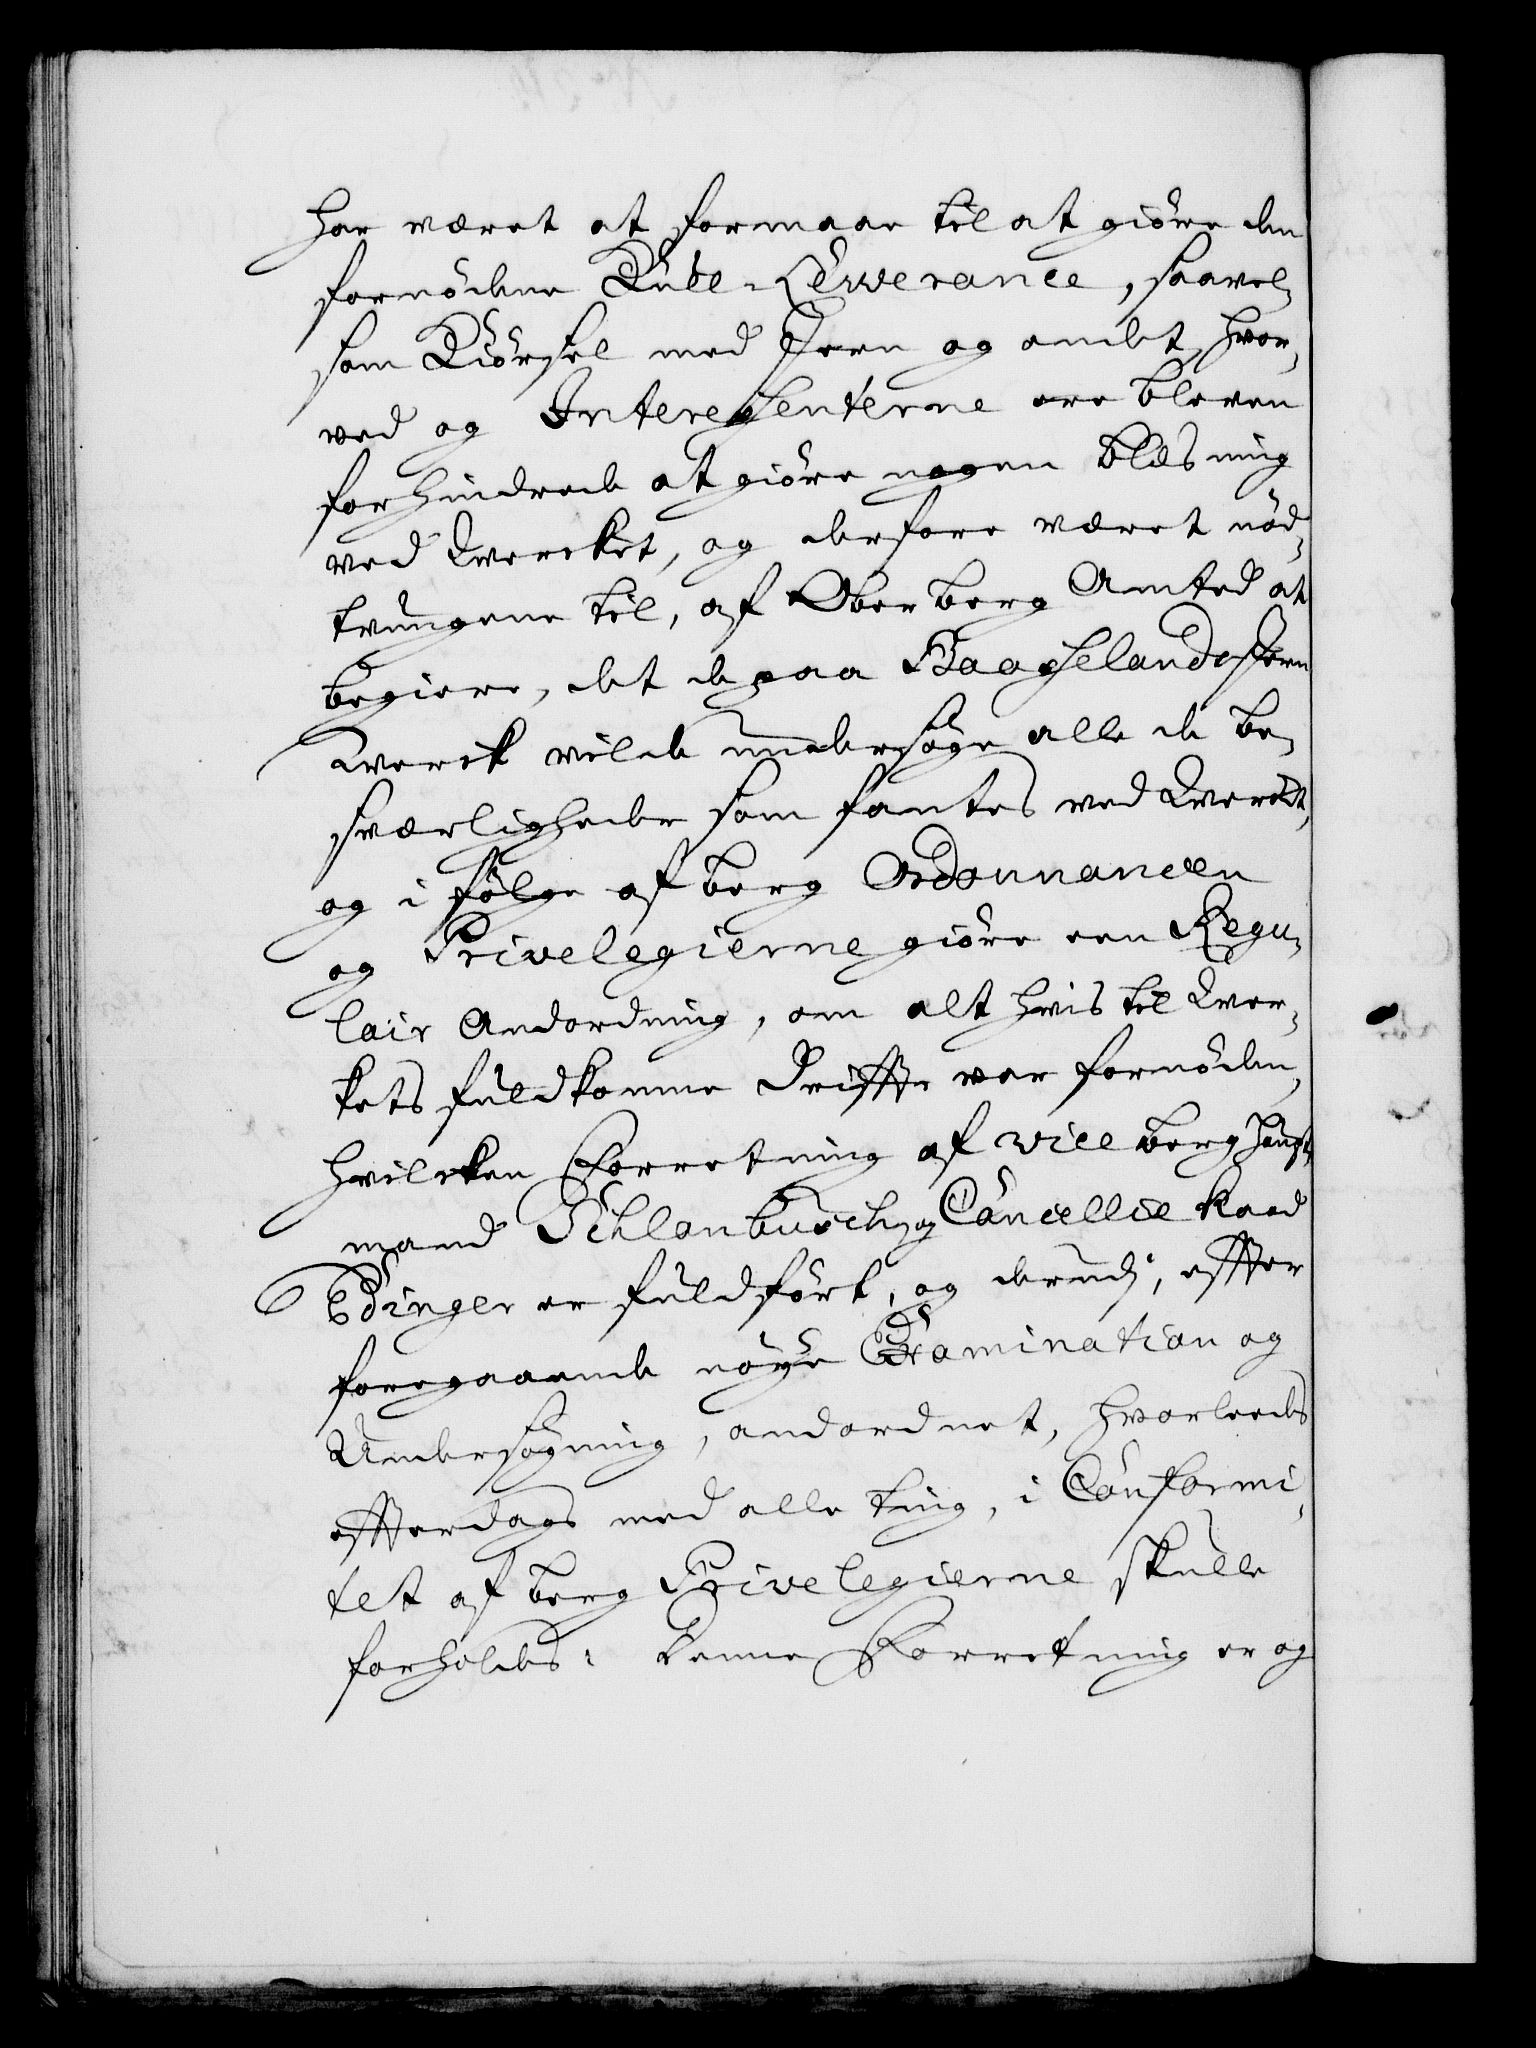 har været at formaae til at giöre den
fornödene Kull-Leverance, saavel,
som Kiörsel med Jern og andet, hvor,
ved og Interehsenterne ere bleven
forhindrede at giöre nogen blæsning
ved Vercket, og derfore været nöd,
tvungene til, af Ober berg Amted at
begiere, det de paa Baaselands Jern
Verck vilde undersöge alle de be,
sværligheder som fantes ved Vercket,
og i fölge af berg Ordonnancen
og Privelegierne giöre een Regu,
lair Andordning, om alt hvis til Ver,
kets fuldkomne Driffte var fornöden,
hvilcken Forretning af vice berghaupt,
mand Schlanbusch og Cancellie Raad
Edinger er fuldfört, og derudj, effter
foregaaende nöye Examination og
Undersögning, andordnet, hvorleedes
effterdags med alle ting, i Conformi,
tet af berg Privelegierne skulle
forholdes: Denne Forretning er og